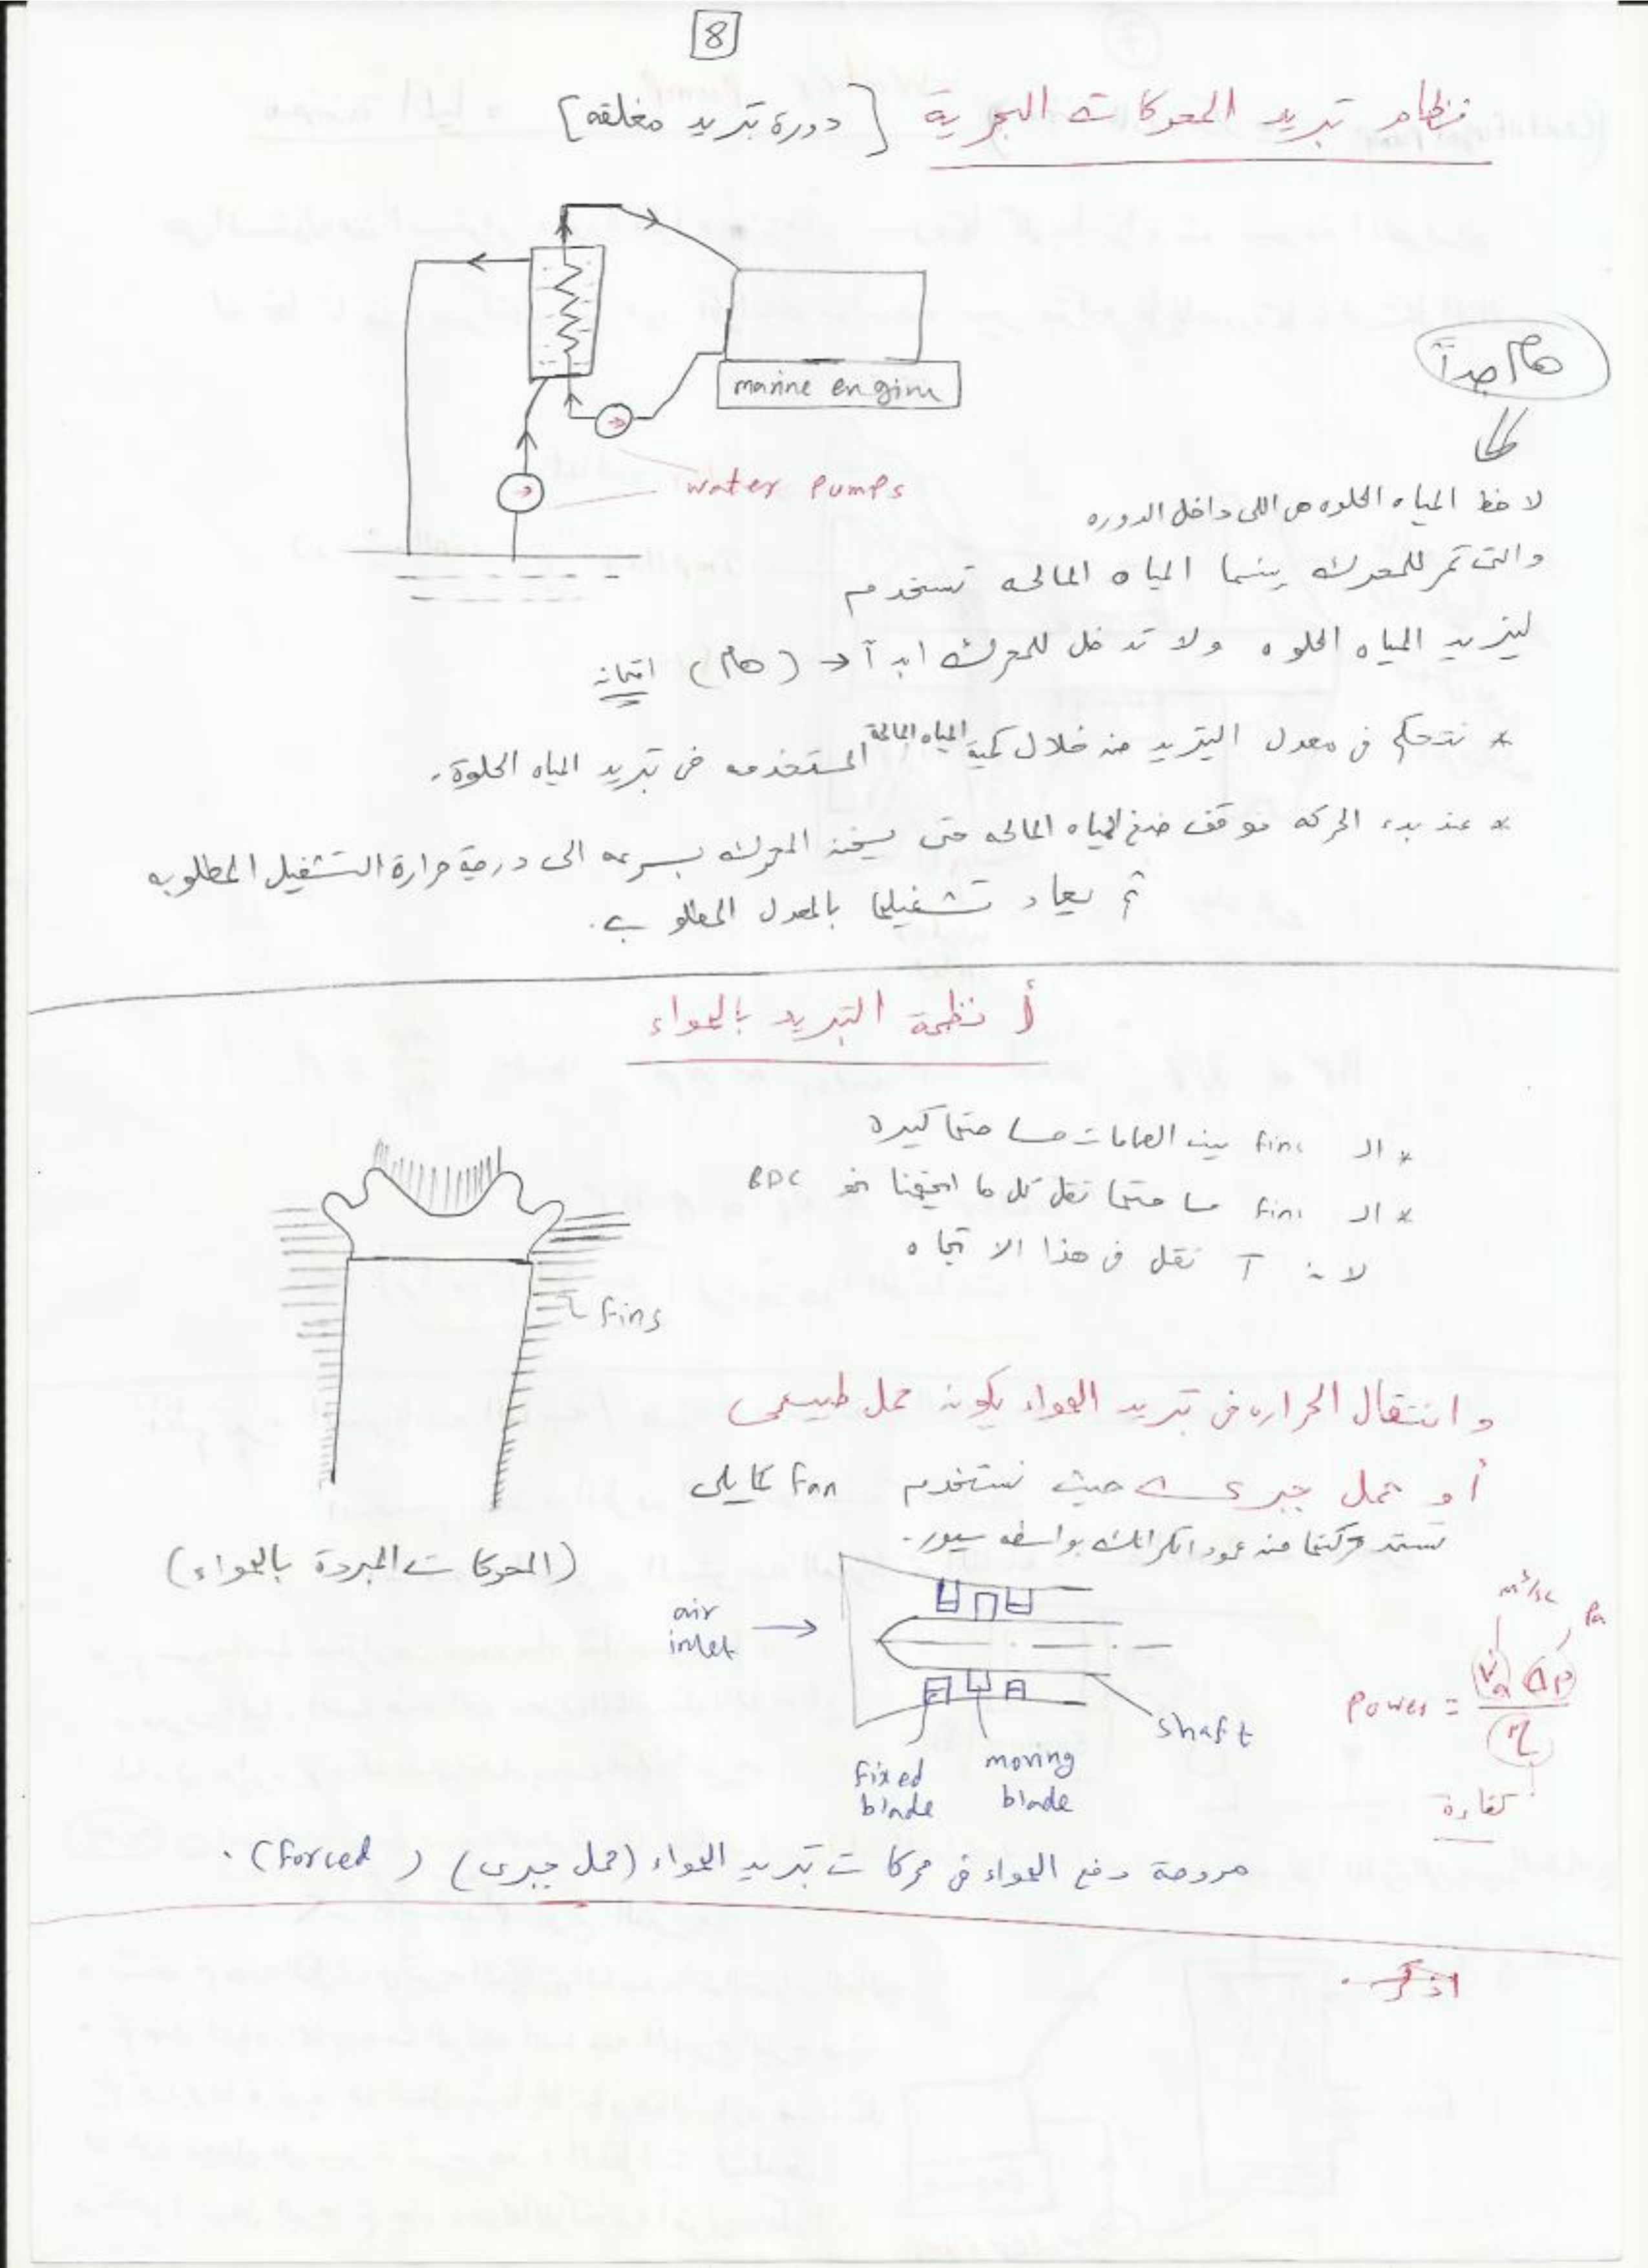 8
نظام تبريد المحركات البحرية [دورة تبريد مغلقه]
marine engine
water pumps
هام جداً
لاحظ المياه الحلوه هى اللى داخل الدوره
والتى تمر للمحرك بينما المياه المالحه تستخدم
لتبريد المياه الحلوه ولا تدخل للمحرك ابداً → (هام) امتحان
* نتحكم فى معدل التبريد من خلال كمية المياه المالحة المستخدمه فى تبريد المياه الحلوة.
* عند بدء الحركه نوقف ضخ المياه المالحه حتى يسخن المحرك بسرعه الى درجة حرارة التشغيل المطلوبه
ثم يعاد تشغيلها بالمعدل المطلوب.
أنظمة التبريد بالهواء
* الـ fins بين الصمامات مساحتها كبيره
* الـ fins مساحتها تقل كل ما اتجهنا نحو BDC
لان T تقل فى هذا الاتجاه
fins
وانتقال الحراره فى تبريد الهواء يكون حمل طبيعى
أو حمل جبرى حيث نستخدم fan كما يلى
تستمد حركتها من عمود الكرنك بواسطه سيور.
(المحركات المبردة بالهواء)
air inlet
fixed blade
moving blade
shaft
m³/sec
Pa
Power = V̇a ΔP / η
كفاءة
مروحة دفع الهواء فى محركات تبريد الهواء (حمل جبرى) (forced).
اذكر